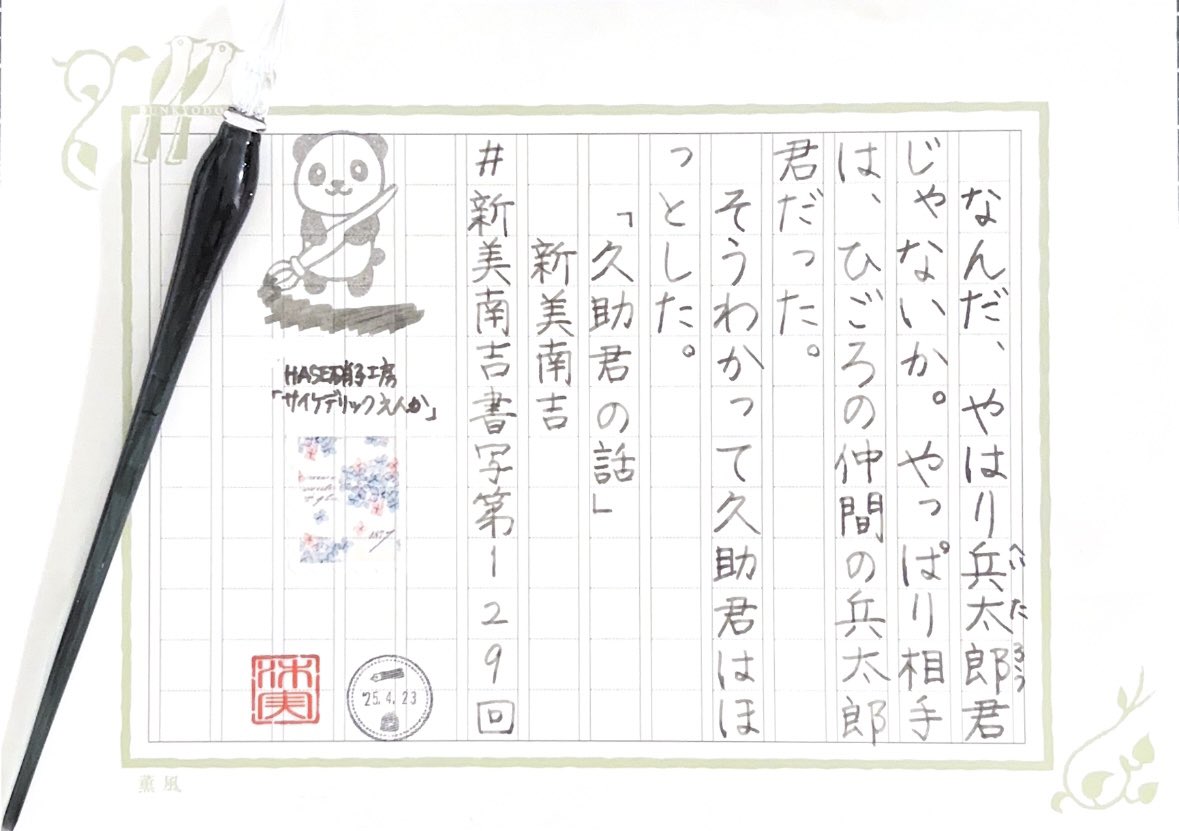 なんだ、やはり兵太郎君
へいたろう
じゃないか。やっぱり相手
は、ひごろの仲間の兵太郎
君だった。
そうわかって久助君はほ
っとした。
「久助君の話」
新美南吉
#新美南吉書写第129回
HASE硝子工房
「サイケデリックえんか」
'25.4.23
薫風